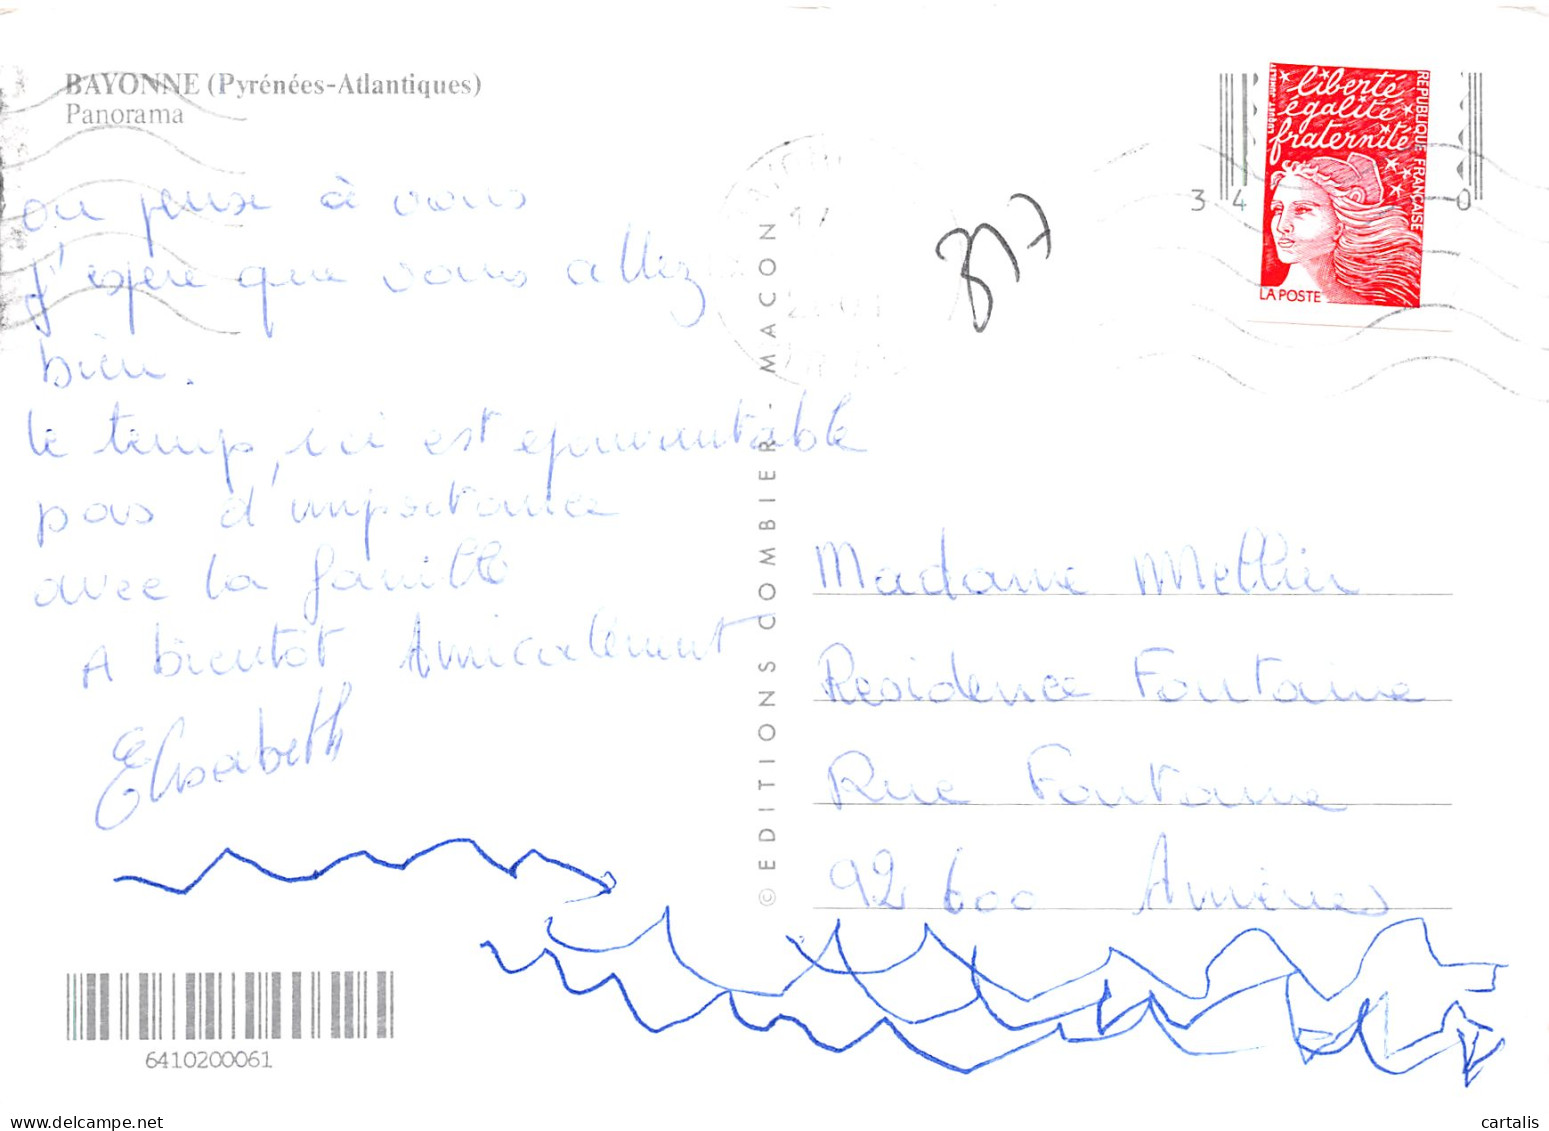 BAYONNE (Pyrénées-Atlantiques)
Panorama
on pense à vous
J'espère que vous allez
bien.
le temps ici est épouvantable
pas d'importance
avec la famille
A bientôt Amicalement
Elisabeth
6410200061
© EDITIONS COMBIER - MACON
317
3 4 0
liberté
égalité
fraternité
REPUBLIQUE FRANÇAISE
LA POSTE
Madame Mellier
Residence Fontaine
Rue Fontaine
92 600 Asnières
cartalis